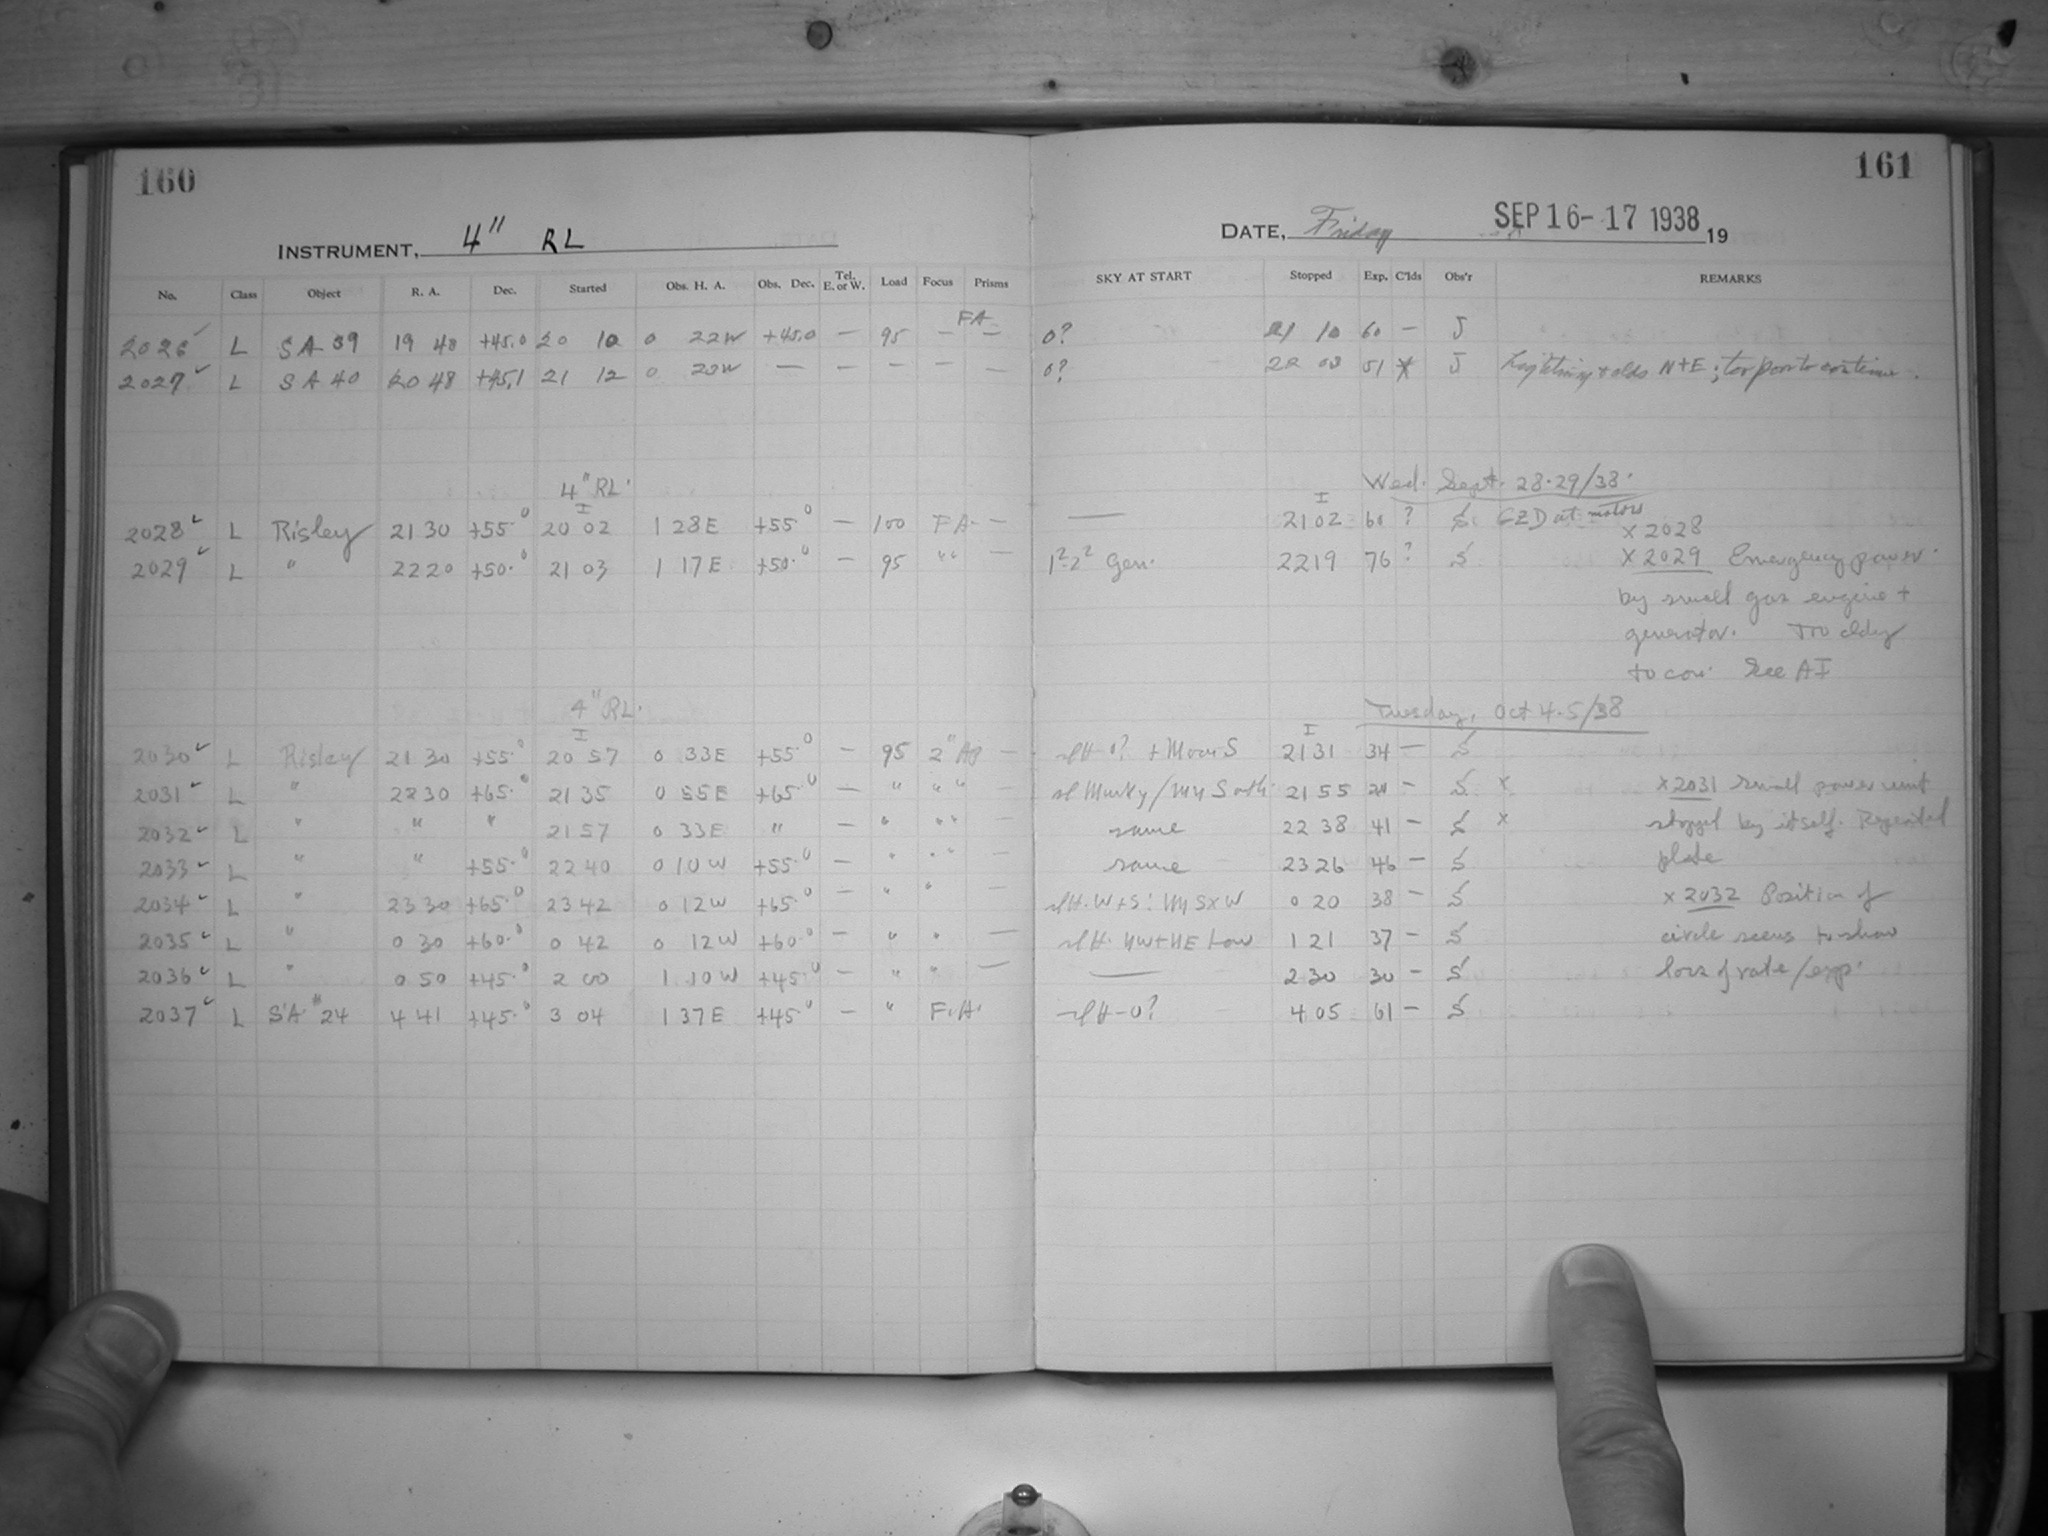 160
161
INSTRUMENT, 4" RL
DATE, Friday SEP 16-17 1938 19
No. Class Object R. A. Dec. Started Obs. H. A. Obs. Dec. Tel. E. or W. Load Focus Prisms SKY AT START Stopped Exp. C'lds Obs'r REMARKS
FA
2026 ✓ L SA 39 19 48 +45.0 20 10 0 22W +45.0 — 95 — — 0? 21 10 60 — J
2027 ✓ L SA 40 20 48 +45.1 21 12 0 22W — — — — — 0? 22 03 51 J Lightning + clds N+E; too poor to continue.
4" RL. Wed. Sept. 28-29/38.
I I
2028 ✓ L Risley 21 30 +55.0 20 02 1 28E +55.0 — 100 FA — — 21 02 60 ? S CZD at motors
x 2028
2029 ✓ L " 22 20 +50.0 21 03 1 17E +50.0 — 95 " " — 1²-2² Gen. 22 19 76 ? S x 2029 Emergency power
by small gas engine +
generator. Too cldy
to con. See AI
4" RL. Tuesday, Oct 4-5/38
I I
2030 ✓ L Risley 21 30 +55.0 20 57 0 33E +55.0 — 95 — 0? + Moon S 21 31 34 — S
2031 ✓ L " 22 30 +65.0 21 35 0 55E +65.0 — " " " 21 55 20 — S x x 2031 small power unit
2032 ✓ L " " " 21 57 0 33E " — " " " same 22 38 41 — S x stopped by itself. Repeated
2033 ✓ L " " +55.0 22 40 0 10W +55.0 — " " " same 23 26 46 — S plate
2034 ✓ L " 23 30 +65.0 23 42 0 12W +65.0 — " " — 0 20 38 — S x 2032 Position of
2035 ✓ L " 0 30 +60.0 0 42 0 12W +60.0 — " " — sl H. NW+NE Low 1 21 37 — S circle seems to show
2036 ✓ L " 0 50 +45.0 2 00 1 10W +45.0 — " " — — 2 30 30 — S loss of rate/exp.
2037 ✓ L S.A. 24 4 41 +45.0 3 04 1 37E +45.0 — " F.A. sl H-0? 4 05 61 — S